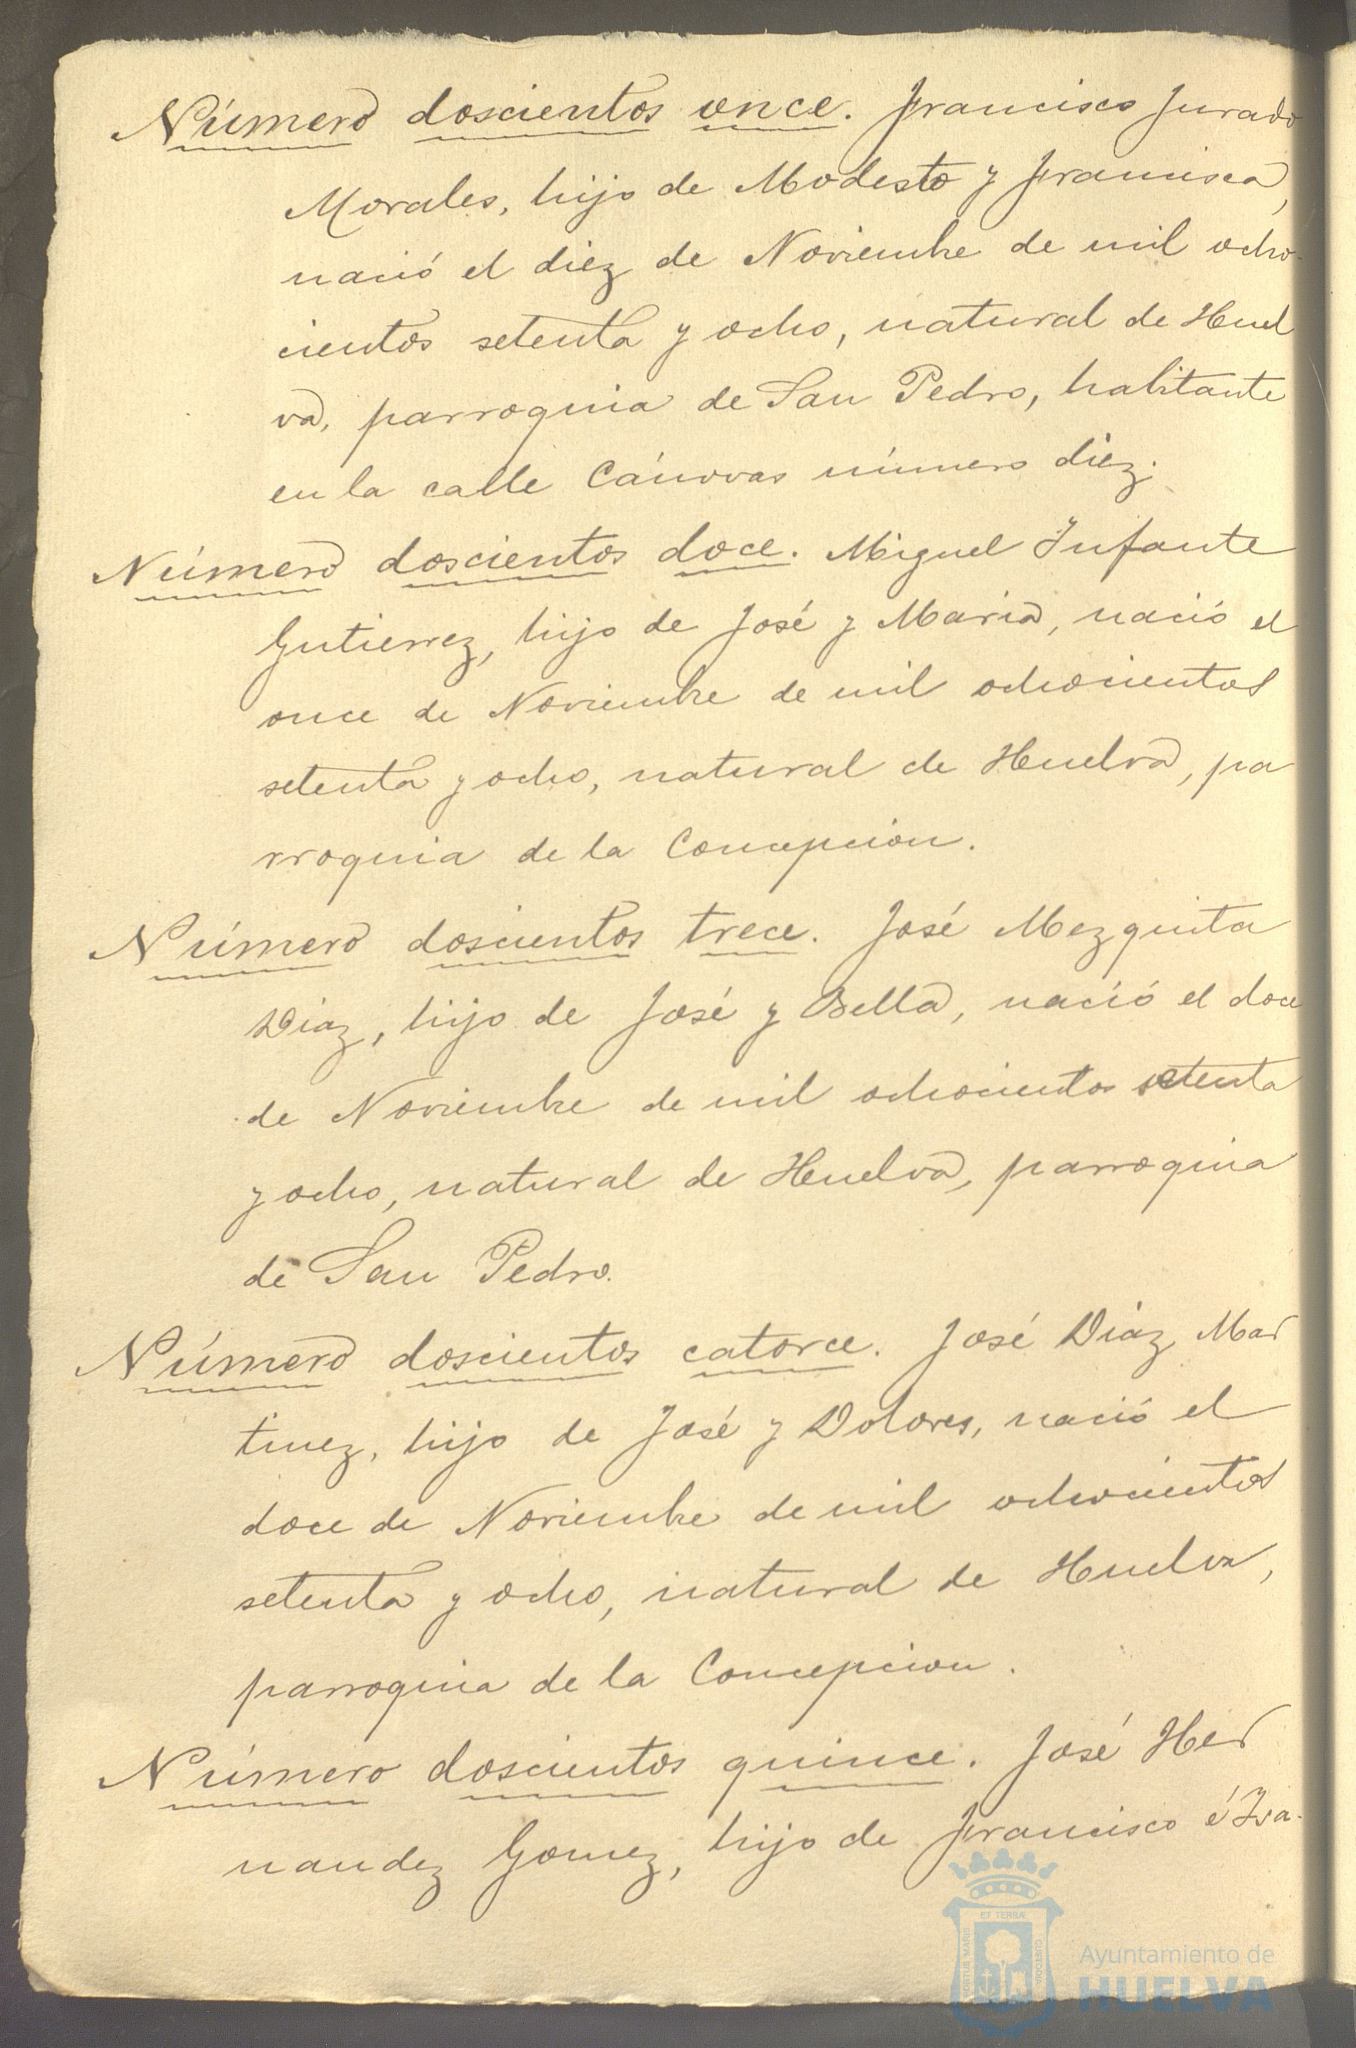 Número doscientos once. Francisco Jurado
Morales, hijo de Modesto y Francisca,
nació el diez de Noviembre de mil ocho-
cientos setenta y ocho, natural de Huel
va, parroquia de San Pedro, habitante
en la calle Cánovas número diez.
Número doscientos doce. Miguel Infante
Gutierrez, hijo de José y Maria, nació el
once de Noviembre de mil ochocientos
setenta y ocho, natural de Huelva, pa
rroquia de la Concepcion.
Número doscientos trece. José Mezquita
Diaz, hijo de José y Bella, nació el doce
de Noviembre de mil ochocientos setenta
y ocho, natural de Huelva, parroquia
de San Pedro.
Número doscientos catorce. José Diaz Mar
tinez, hijo de José y Dolores, nació el
doce de Noviembre de mil ochocientos
setenta y ocho, natural de Huelva,
parroquia de la Concepcion.
Número doscientos quince. José Her
nandez Gomez, hijo de Francisco é Isa-
PORTUS MARIS ET TERRAE CUSTODIA
Ayuntamiento de
HUELVA